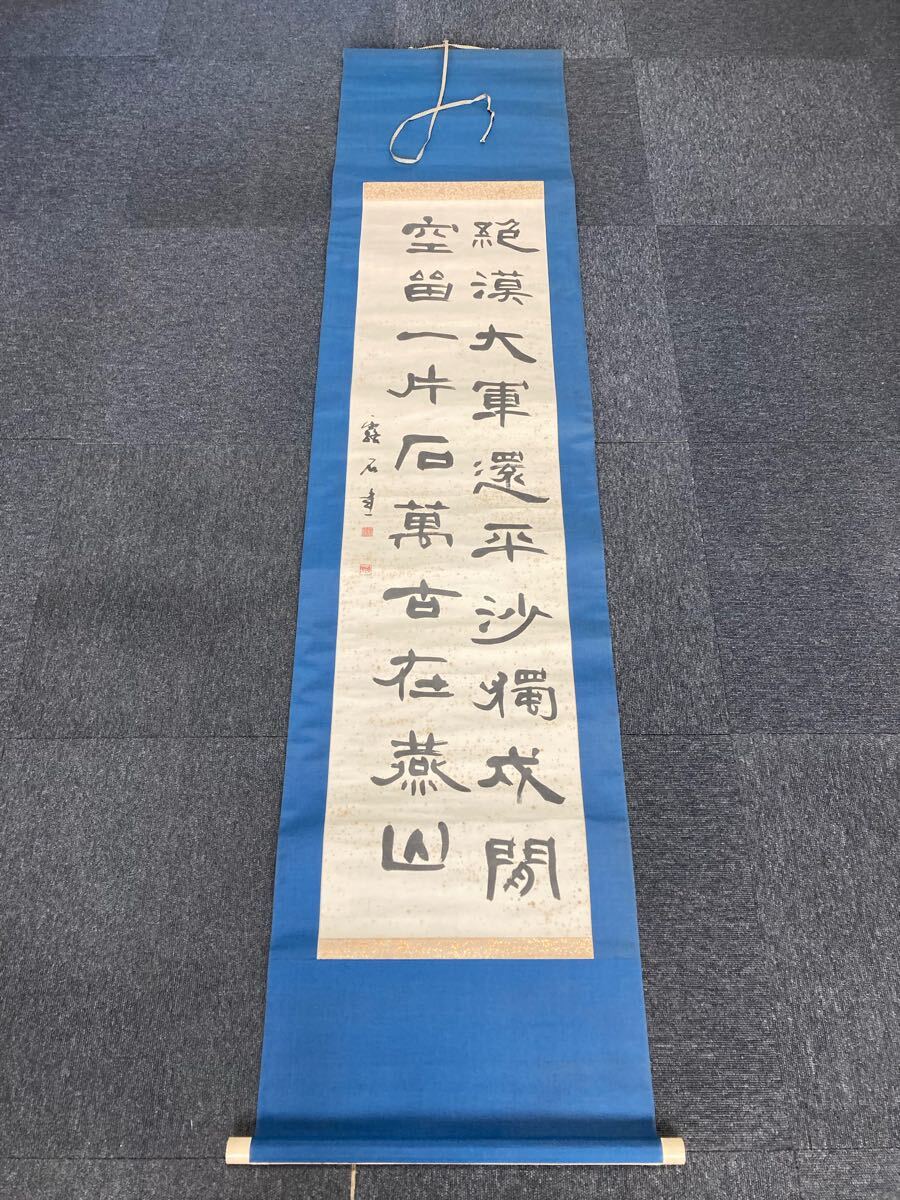 絶漠大軍還平沙獨戍閒
空畱一片石萬古在燕山
石